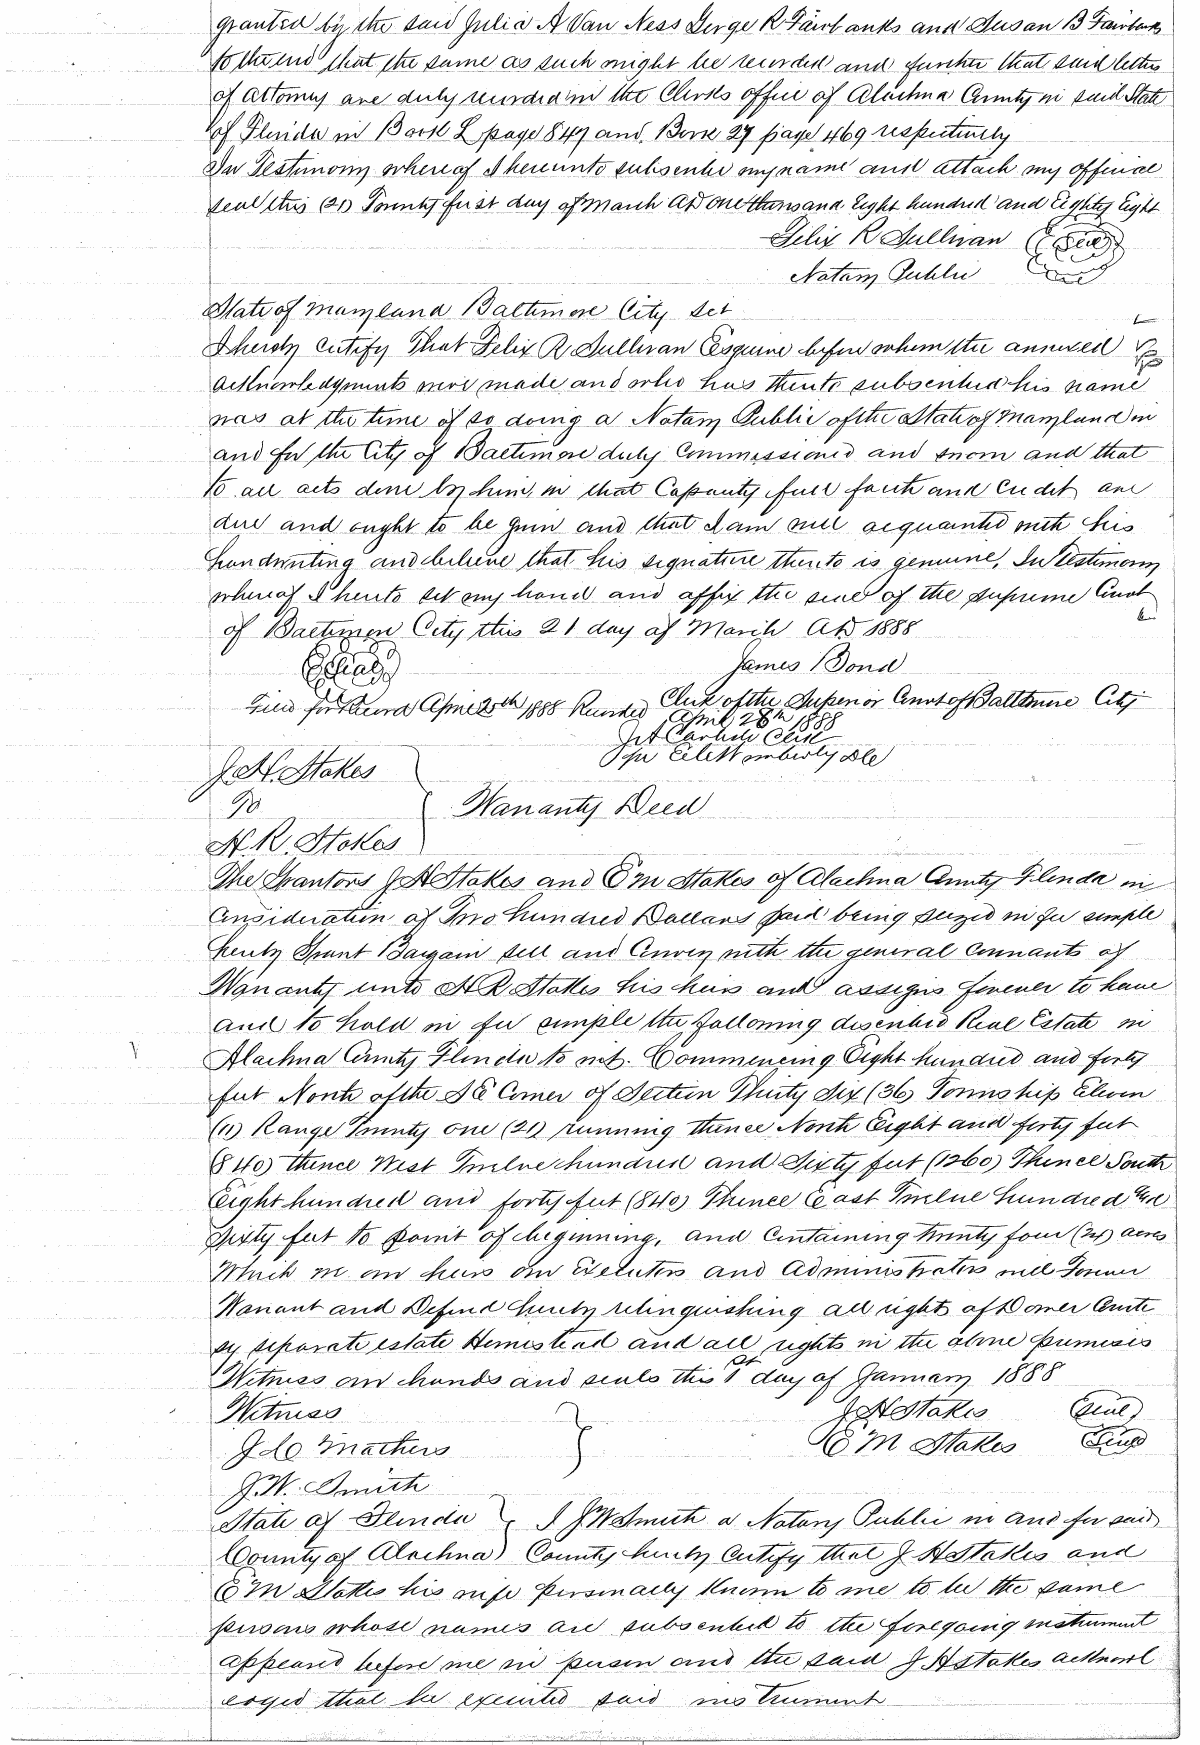 granted by the said Julia A Van Ness Gerge R Fairbanks and Susan B Fairbanks
to the end that the same as such might be recorded and further that said letters
of attorney are duly recorded in the Clerks office of Alachua County in said State
of Florida in Book L page 847 and Book 27 page 469 respectively
In Testimony whereof I hereunto subscribe my name and attach my official
seal this (21) Twenty first day of March AD one thousand Eight hundred and Eighty Eight
Felix R Sullivan (Seal)
Notary Public
State of Maryland Baltimore City Sct
I hereby certify That Felix R Sullivan Esquire before whom the annexed
acknowledgments were made and who has thereto subscribed his name
was at the time of so doing a Notary Public of the State of Maryland in
and for the City of Baltimore duly Commissioned and sworn and that
to all acts done by him, in that Capacity full faith and Credit are
due and ought to be given and that I am well acquainted with his
handwriting and believe that his signature thereto is genuine, In Testimony
whereof I hereto set my hand and affix the seal of the Supreme Court
of Baltimore City this 21 day of March AD 1888
(Seal) James Bond
Clerk of the Superior Court of Baltimore City
Filed for Record April 20th 1888 Recorded April 28th 1888
Clerk
Per DC
J. H. Stokes
To Warranty Deed
H. R. Stokes
The Grantors J H Stokes and E M Stokes of Alachua County Florida in
Consideration of Two hundred Dollars paid being seized in fee simple
hereby Grant Bargain sell and Convey with the general Covenants of
Warranty unto H R Stokes his heirs and assigns forever to have
and to hold in fee simple the following described Real Estate in
Alachua County Florida to wit. Commencing Eight hundred and forty
feet North of the SE Corner of Section Thirty Six (36) Township Eleven
(11) Range Twenty one (21) running thence North Eight and forty feet
(840) thence West Twelve hundred and Sixty feet (1260) Thence South
Eight hundred and forty feet (840) Thence East Twelve hundred and
Sixty feet to point of beginning, and Containing twenty four (24) acres
Which we our heirs our Executors and Administrators will Forever
Warrant and Defend hereby relinquishing all right of Dower Curte
sy separate estate Homestead and all rights in the above premises
Witness our hands and seals this 1st day of January 1888
Witness J H Stokes (Seal)
Mathers E M Stokes (Seal)
J. W. Smith
State of Florida } I J W Smith a Notary Public in and for said
County of Alachua) County hereby Certify that J H Stokes and
E M Stokes his wife personally known to me to be the same
persons whose names are subscribed to the foregoing instrument
appeared before me in person and the said J H Stokes acknowl
edged that he executed said instrument